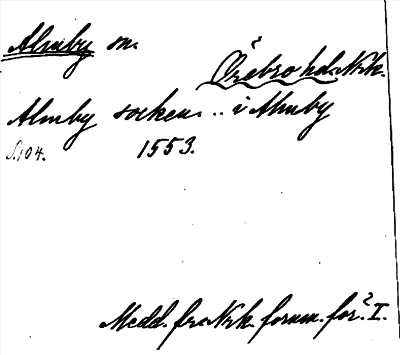 Almby sn.
Örebro hd. Nrk.
Almby socken. .. i Almby
S. 104. 1553.
Medd. fr. Nrk. fornm. för. I.